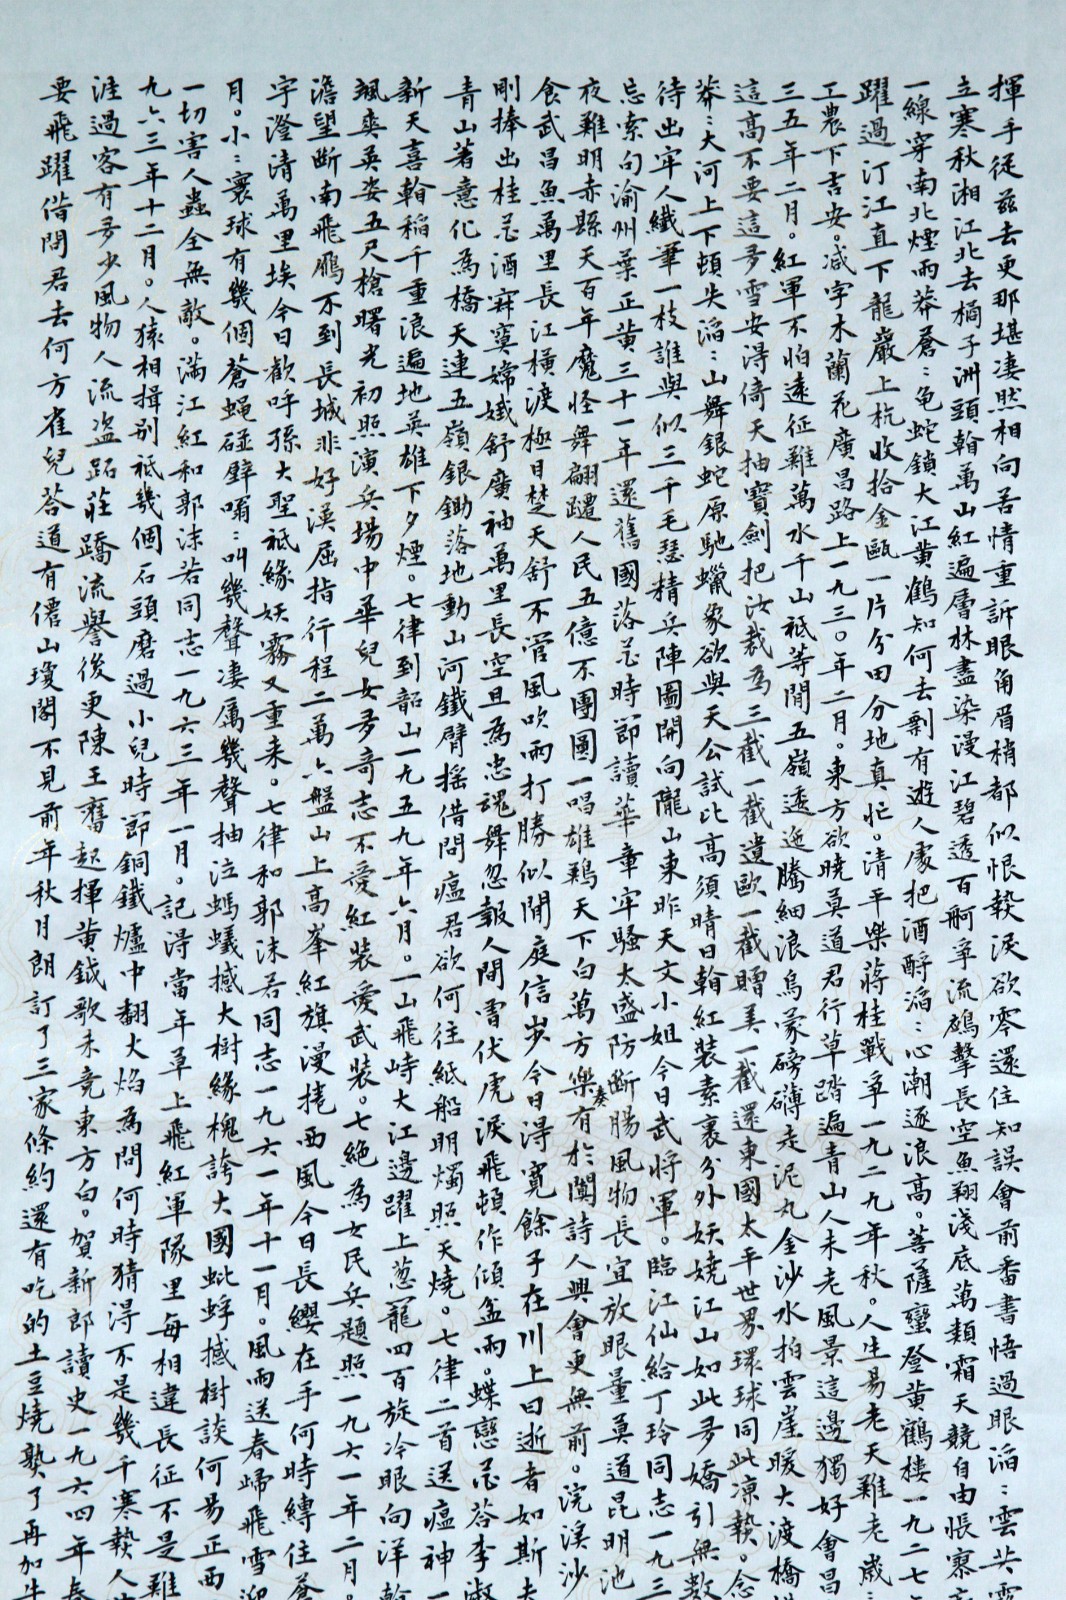 揮手從茲去更那堪凄然相向苦情重訴眼角眉梢都似恨熱淚欲零還住知誤會前番書悟過眼滔:雲共霧
立寒秋湘江北去橘子洲頭𠦝萬山紅遍層林盡染漫江碧透百舸爭流鷁擊長空魚翔淺底萬類霜天競自由悵寥
一線穿南北煙雨莽蒼:龜蛇鎖大江黄鶴知何去剩有遊人處把酒酹滔:心潮逐浪高。菩薩蠻登黄鶴樓一九二七
躍過汀江直下龍巖上杭收拾金甌一片分田分地真忙。清平樂蔣桂戰爭一九二九年秋。人生易老天難老歲:
工農下吉安。減字木蘭花廣昌路上一九三〇年二月。東方欲曉莫道君行草踏遍青山人未老風景這邊獨好會昌
三五年二月。紅軍不怕遠征難萬水千山祇等閒五嶺逶迤騰細浪烏蒙磅礴走泥丸金沙水拍雲崖暖大渡橋
這高不要這多雪安得倚天抽寶劍把汝裁為三截一截遺歐一截贈美一截還東國太平世界環球同此凉熱。念
莽:大河上下頓失滔:山舞銀蛇原馳蠟象欲與天公試比高須晴日𠦝紅裝素裹分外妖嬈江山如此多嬌引無數
待出牢人纖筆一枝誰與似三千毛瑟精兵陣圖開向隴山東昨天文小姐今日武將軍。臨江仙給丁玲同志一九三
忘索句渝州葉正黄三十一年還舊國落花時節讀華章牢騷太盛防斷腸風物長宜放眼量莫道昆明池
夜難明赤縣天百年魔怪舞翩躚人民五億不團圓一唱雄鷄天下白萬方樂奏有於闐詩人興會更無前。浣溪沙
食武昌魚萬里長江橫渡極目楚天舒不管風吹雨打勝似閒庭信步今日得寬餘子在川上曰逝者如斯夫
剛捧出桂花酒寂寞嫦娥舒廣袖萬里長空且為忠魂舞忽報人間曾伏虎淚飛頓作傾盆雨。蝶戀花答李淑
青山著意化為橋天連五嶺銀鋤落地動山河鐵臂搖借問瘟君欲何往紙船明燭照天燒。七律二首送瘟神一
新天喜𠦝稻千重浪遍地英雄下夕煙。七律到韶山一九五九年六月。一山飛峙大江邊躍上葱蘢四百旋冷眼向洋𠦝
颯爽英姿五尺槍曙光初照演兵場中華兒女多奇志不愛紅裝愛武裝。七絕為女民兵題照一九六一年二月。
澹望斷南飛鴈不到長城非好漢屈指行程二萬六盤山上高峯紅旗漫捲西風今日長纓在手何時縛住蒼
宇澄清萬里埃今日歡呼孫大聖祗緣妖霧又重来。七律和郭沫若同志一九六一年十一月。風雨送春歸飛雪迎
月。小:寰球有幾個蒼蠅碰壁嗡:叫幾聲凄厲幾聲抽泣螞蟻撼大樹緣槐誇大國蚍蜉撼樹談何易正西
一切害人蟲全無敵。滿江紅和郭沫若同志一九六三年一月。記得當年草上飛紅軍隊里每相違長征不是難
九六三年十二月。人猿相揖別祗幾個石頭磨過小兒時節銅鐵爐中翻火焰為問何時猜得不是幾千寒熱人
涯過客有多少風物人流盜跖莊蹻流譽後更陳王奮起揮黄鉞歌未竟東方白。賀新郎讀史一九六四年春
要飛躍借問君去何方雀兒答道有僊山瓊閣不見前年秋月朗訂了三家條約還有吃的土豆燒熟了再加牛